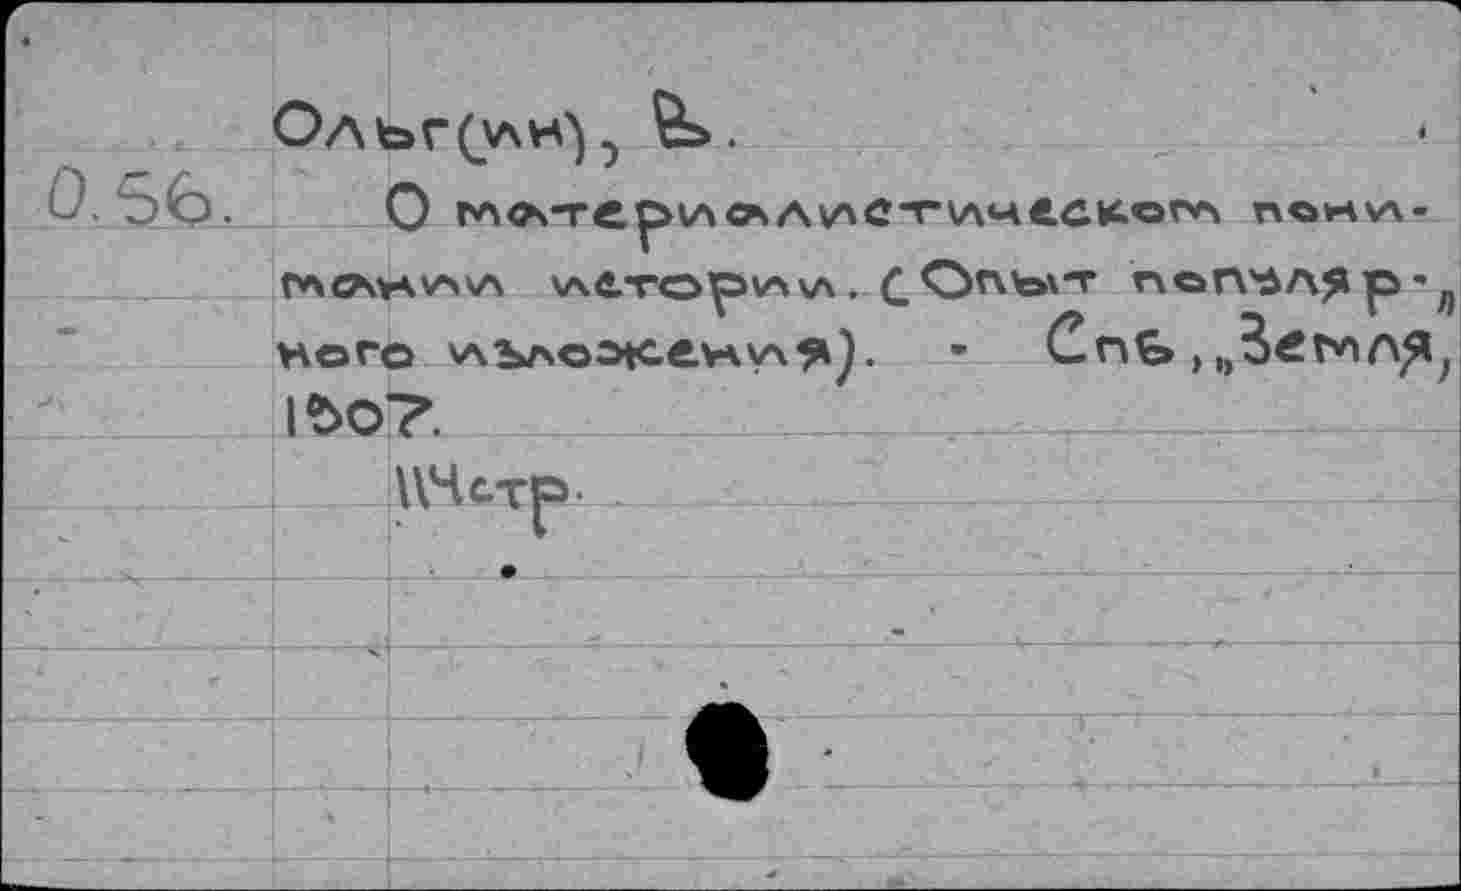 Ольг(ин), В.
O.56.
О материалистическом пони-
мании истории. (Опыт популяр-
ного изложения). - Спб, „Земля„,
1907.
114стр.